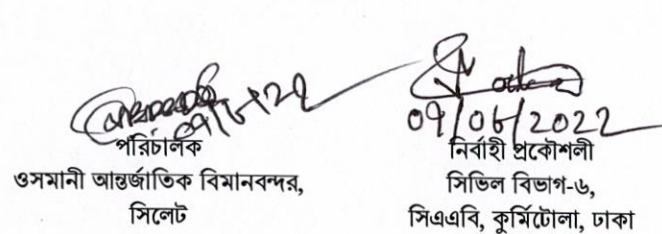 09/06/2022
পরিচালক
ওসমানী আন্তর্জাতিক বিমানবন্দর,
সিলেট
নির্বাহী প্রকৌশলী
সিভিল বিভাগ-৬,
সিএএবি, কুর্মিটোলা, ঢাকা